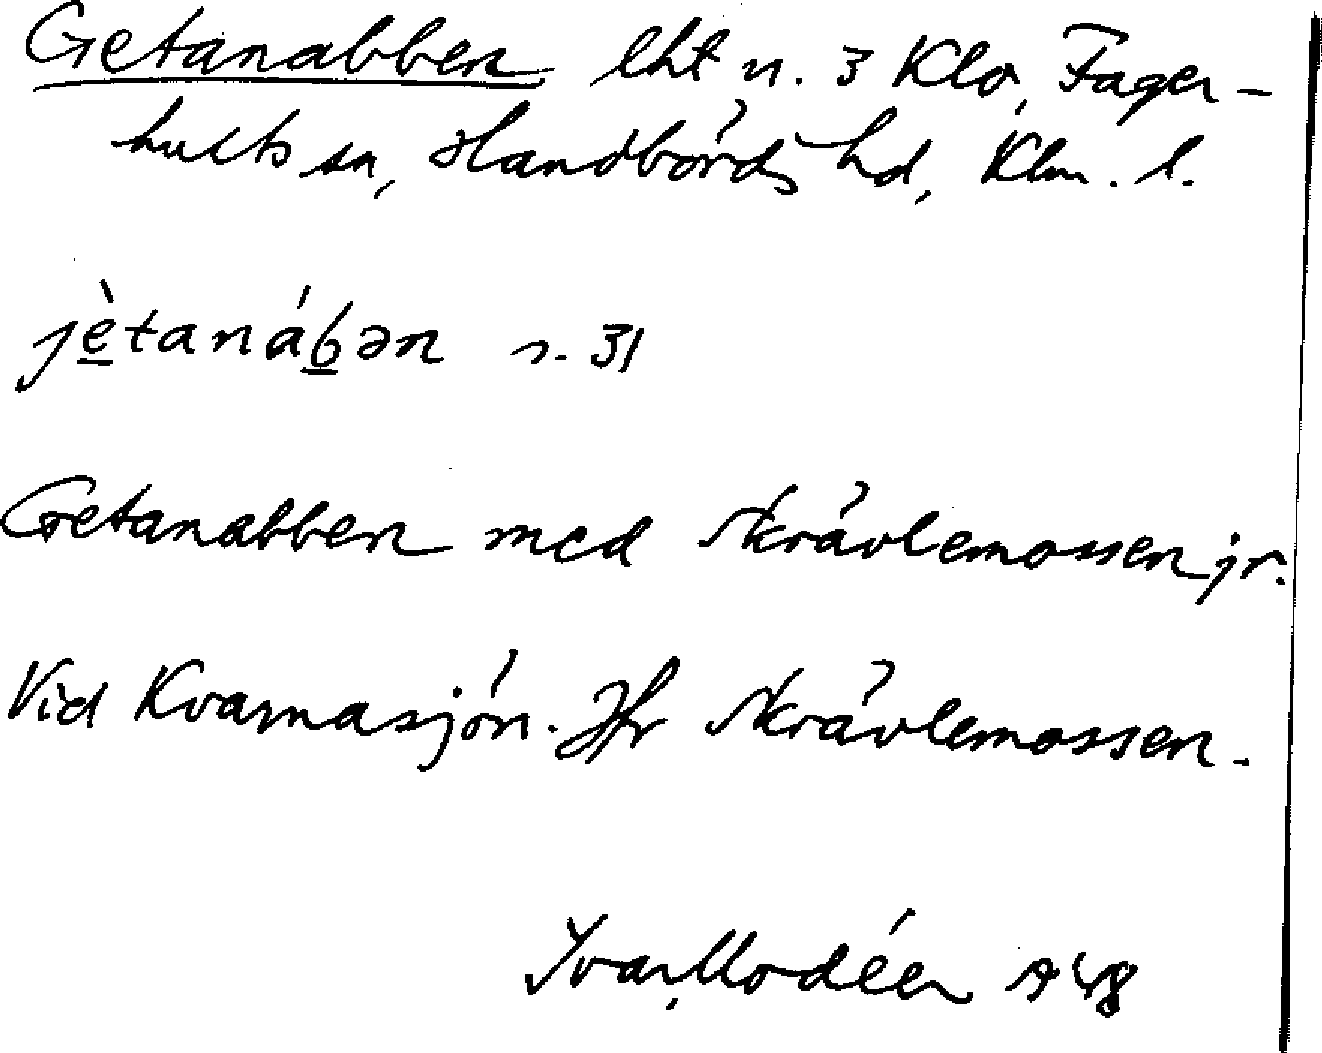 Getanabben lht n. 3 Klo, Fager-
hults sn, Handbörds hd, Klm. l.
jètanábən s. 31
Getanabben med Skrävlemossen jr.
Vid Kvarnasjön. Jfr Skrävlemossen.
Ivar Modéer 1948